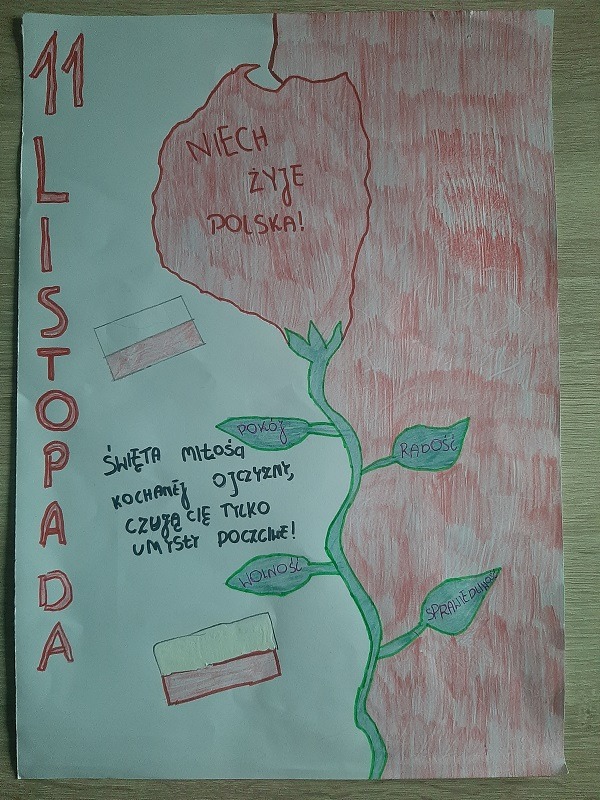 11 LISTOPADA
NIECH
ŻYJE
POLSKA!
POKÓJ
RADOŚĆ
ŚWIĘTA MIŁOŚĆ
KOCHANEJ OJCZYZNY,
CZUJĄ CIĘ TYLKO
UMYSŁY POCZCIWE!
WOLNOŚĆ
SPRAWIEDLIWOŚĆ